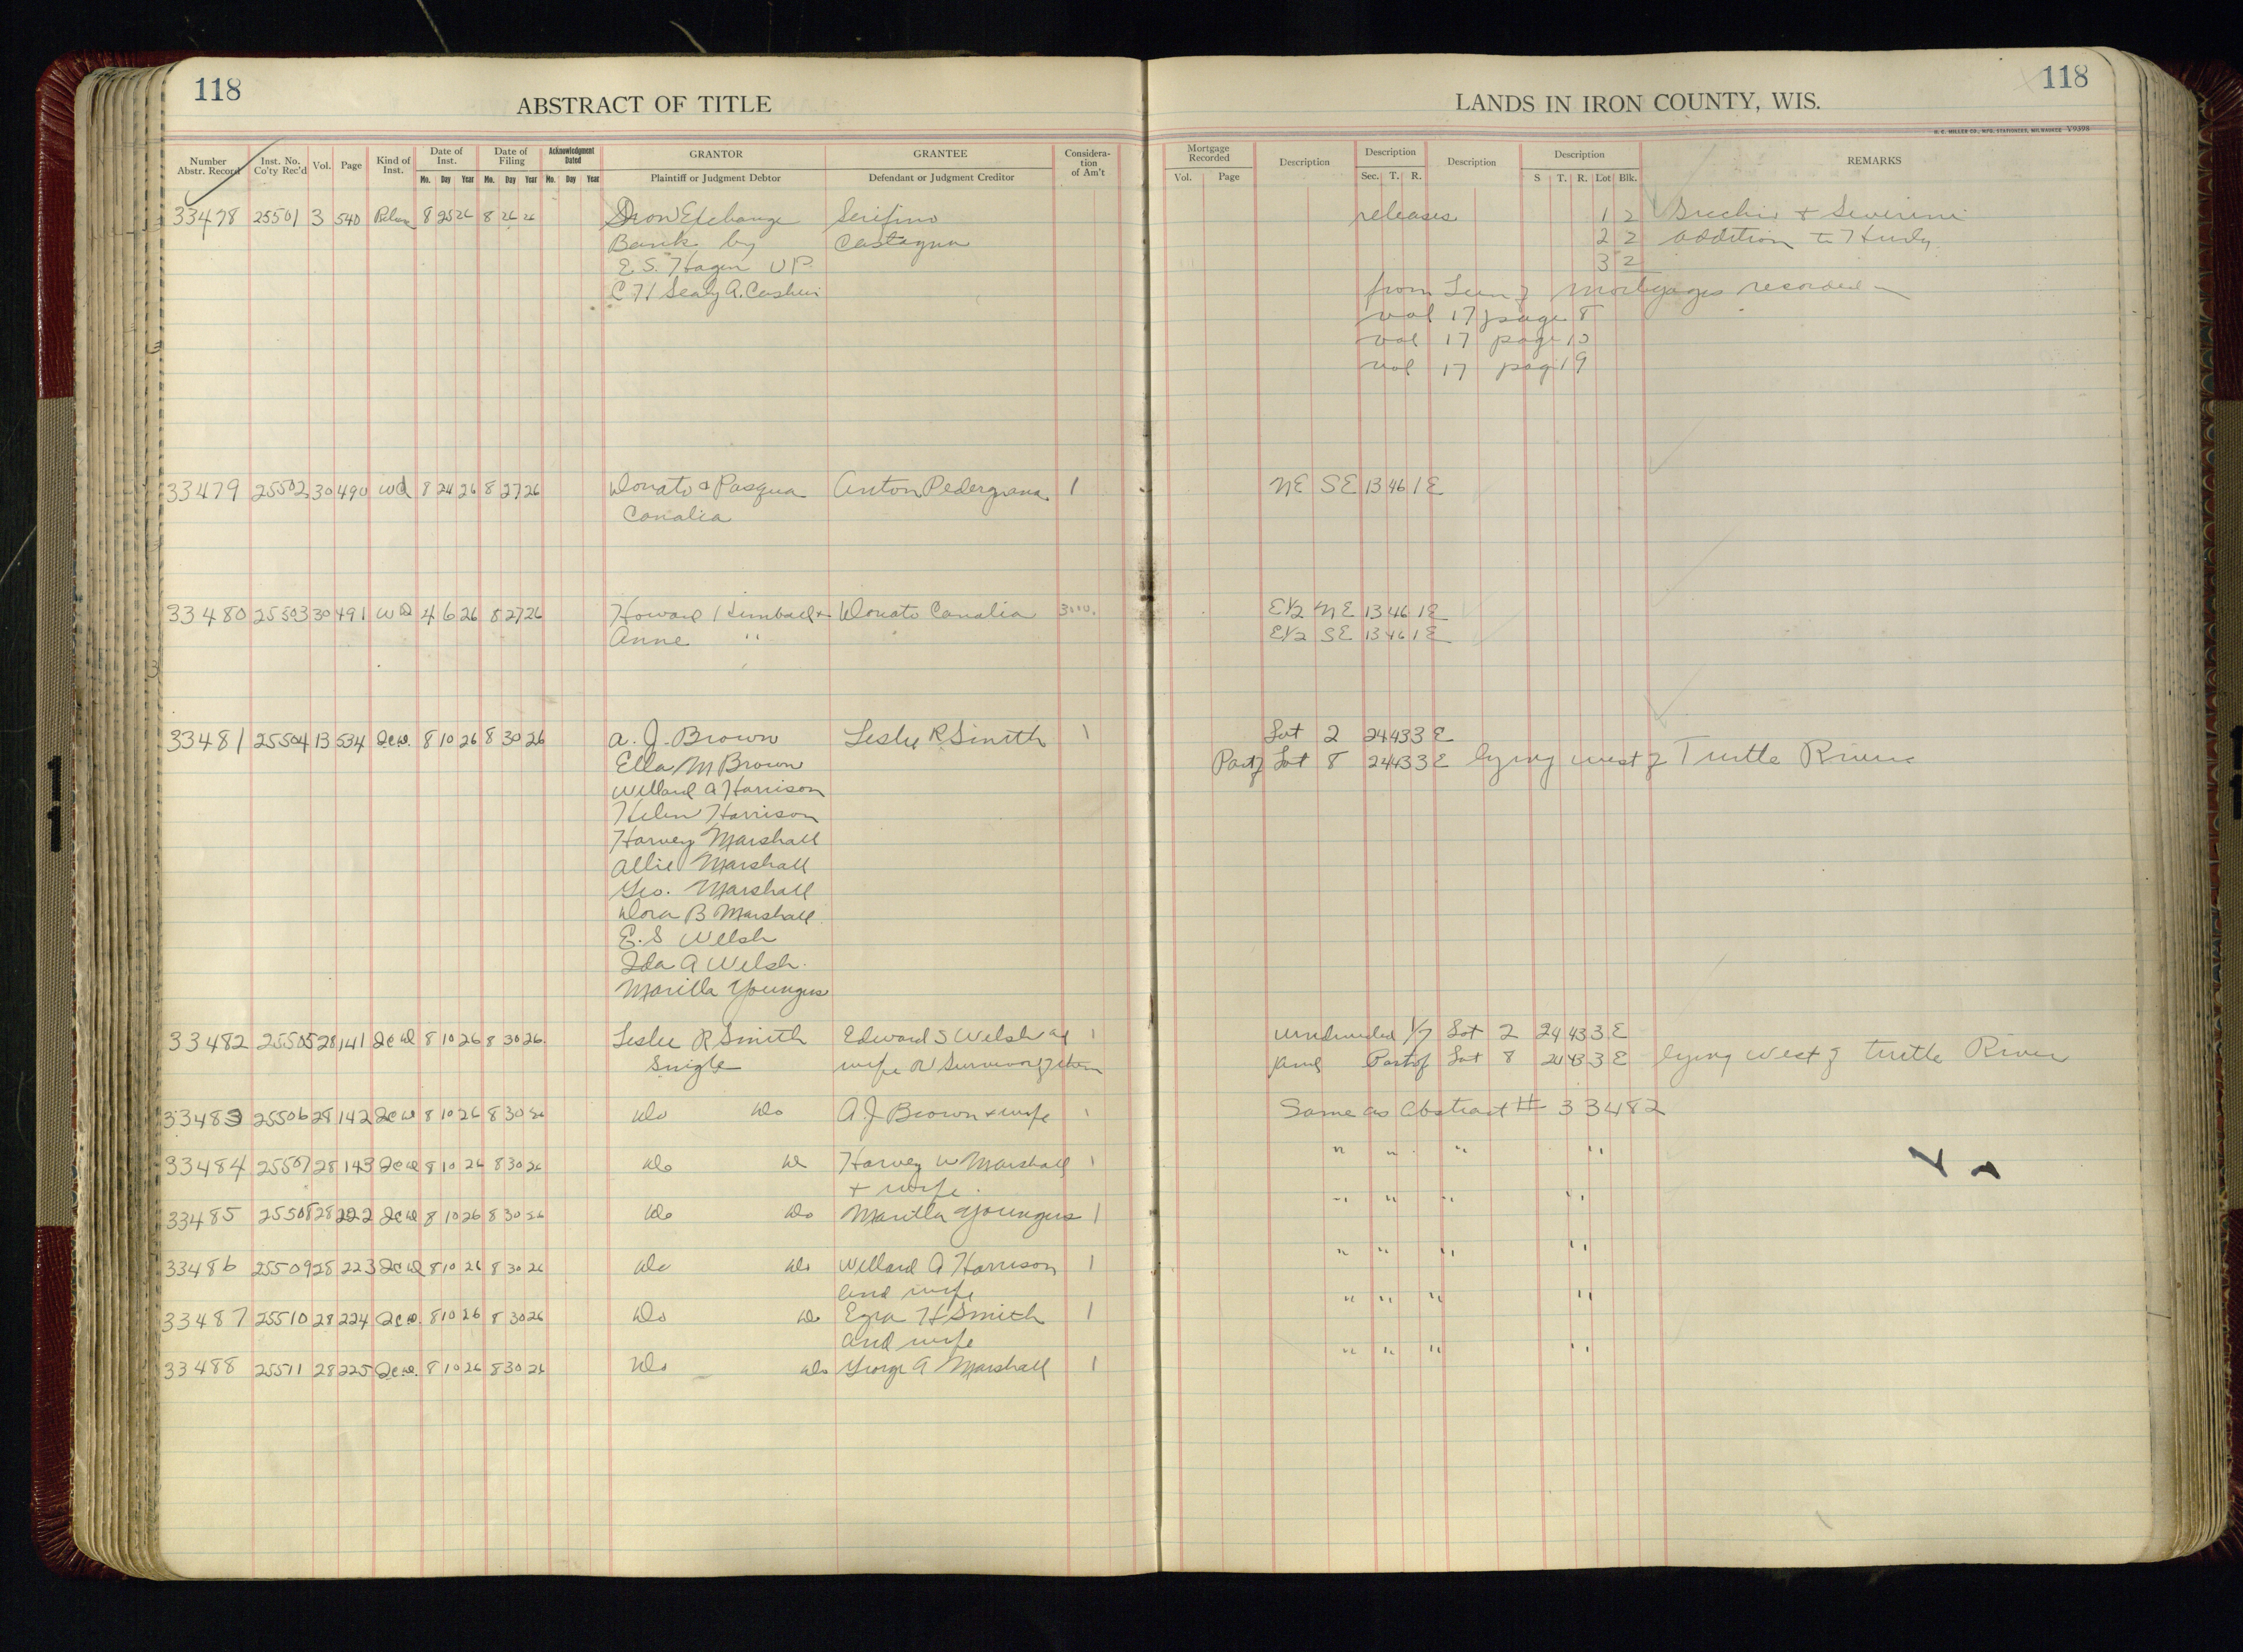 118
ABSTRACT OF TITLE
LANDS IN IRON COUNTY, WIS.
118
H. C. MILLER CO., MFG. STATIONERS, MILWAUKEE V9398
Number Abstr. Record
Inst. No. Co'ty Rec'd
Vol.
Page
Kind of Inst.
Date of Inst.
Mo. Day Year
Date of Filing
Mo. Day Year
Acknowledgment Dated
Mo. Day Year
GRANTOR
Plaintiff or Judgment Debtor
GRANTEE
Defendant or Judgment Creditor
Considera-tion of Am't
Mortgage Recorded
Vol. Page
Description
Description
Sec. T. R.
Description
Description
S T. R. Lot Blk.
REMARKS
33478 25501 3 540 8 25 26 8 26 26 Iron Exchange Serifino releases 1 2 & Severini
Bank by Castagna 2 2 addition to Hurley
E. S. Hagen VP 3 2
C H Sealy A. Cashier from Lien of Mortgages recorded in
vol 17 page 8
vol 17 page 13
vol 17 page 19
33479 25502 30 490 WD 8 24 26 8 27 26 Donato & Pasqua Anton Pedergnana 1 NE SE 13 46 1 E
Canalia
33480 25503 30 491 WD 4 6 26 8 27 26 Howard Kimball & Donato Canalia E½ NE 13 46 1 E
Anne " E½ SE 13 46 1 E
33481 25504 13 534 QCD. 8 10 26 8 30 26 A. J. Brown Leslie R Smith 1 Lot 2 24 43 3 E
Ella M Brown Part of Lot 8 24 43 3 E lying west of Turtle River
Willard A Harrison
Helen Harrison
Harvey Marshall
Allie Marshall
Geo. Marshall
Dora B Marshall
E. S Welsh
Ida A Welsh.
Marilla Youngus
33482 25505 28 141 QCD 8 10 26 8 30 26 Leslie R Smith Edward S Welsh 1 undivided 1/7 Lot 2 24 43 3 E
Single wife or Survivor of them and Part of Lot 8 24 43 3 E lying west of Turtle River
33483 25506 28 142 QCD 8 10 26 8 30 26 Do Do A. J Brown & wife 1 Same as Abstract # 33482
33484 25507 28 143 QCD 8 10 26 8 30 26 Do Do Harvey W Marshall 1 " " " "
& wife.
33485 25508 28 222 QCD 8 10 26 8 30 26 Do Do Marilla Youngus 1 " " " "
33486 25509 28 223 QCD 8 10 26 8 30 26 Do Do Willard A Harrison 1 " " " "
and wife
33487 25510 28 224 QCD. 8 10 26 8 30 26 Do Do Ezra H Smith 1 " " " "
and wife
33488 25511 28 225 QCD. 8 10 26 8 30 26 Do Do George A Marshall 1 " " " "